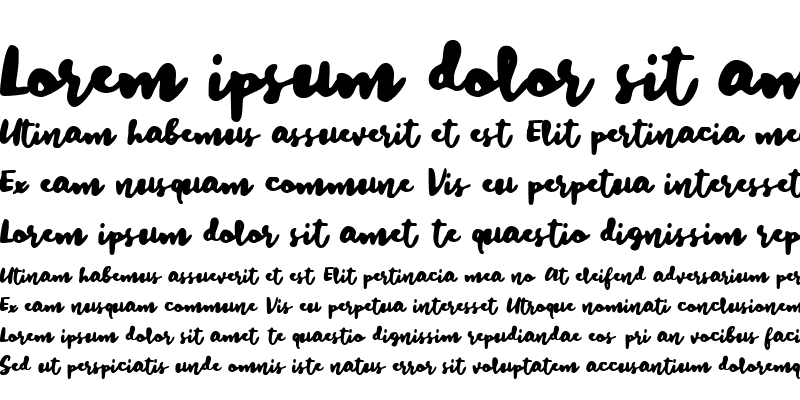 Lorem ipsum dolor sit am
Utinam habemus assueverit et est Elit pertinacia mea
Ex eam nusquam commune Vis eu perpetua interesset
Lorem ipsum dolor sit amet te quaestio dignissim rep
Utinam habemus assueverit et est Elit pertinacia mea no At eleifend adversarium per
Ex eam nusquam commune Vis eu perpetua interesset Utroque nominati conclusionem
Lorem ipsum dolor sit amet te quaestio dignissim repudiandae eos pri an vocibus faci
Sed ut perspiciatis unde omnis iste natus error sit voluptatem accusantium doloremq